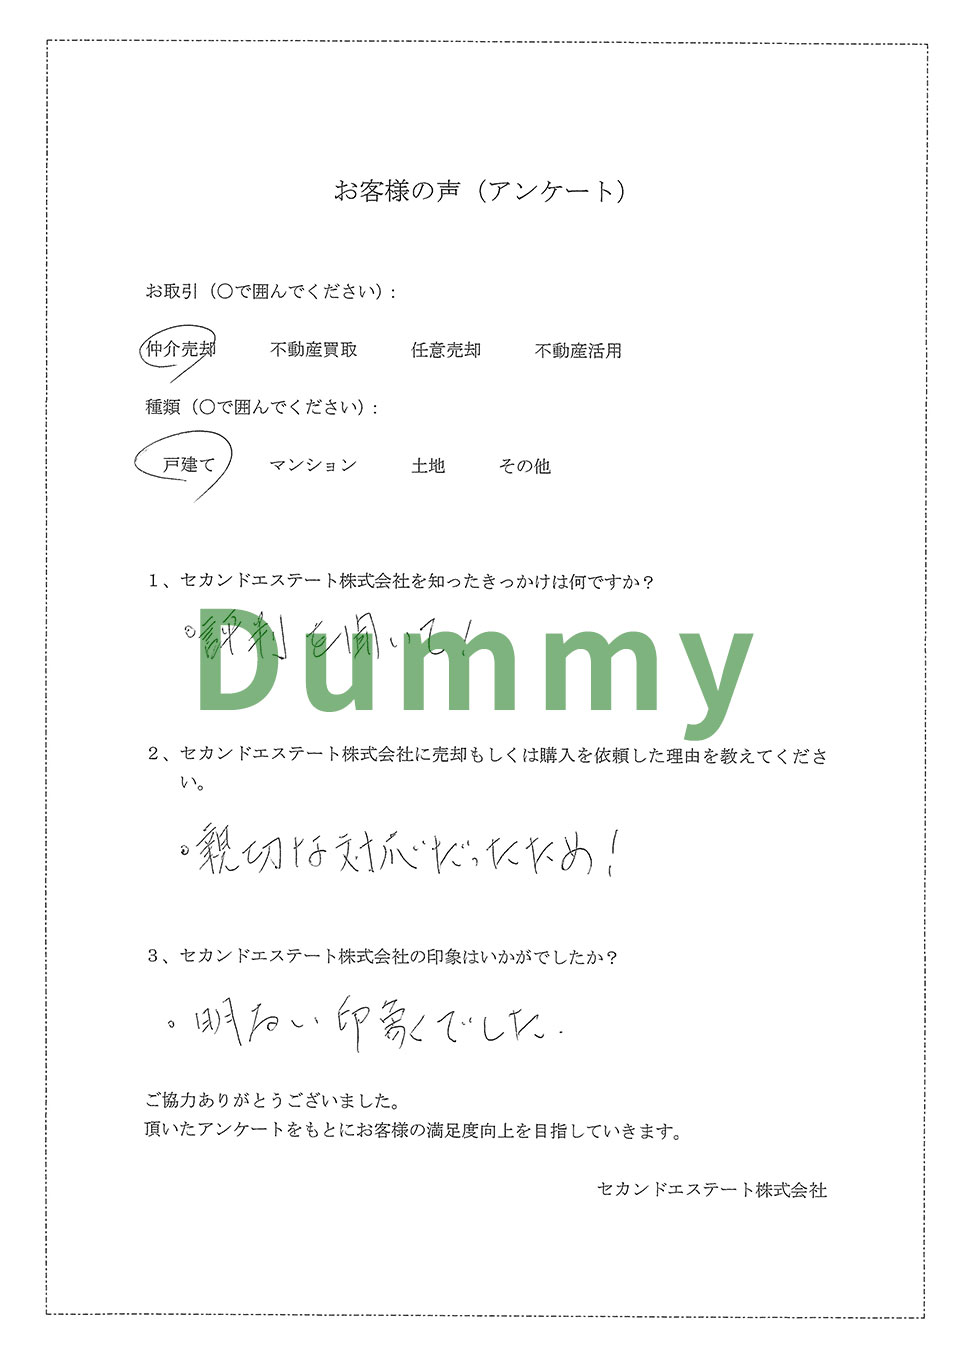 お客様の声（アンケート）
お取引（〇で囲んでください）:
仲介売却 不動産買取 任意売却 不動産活用
種類（〇で囲んでください）:
戸建て マンション 土地 その他
１、セカンドエステート株式会社を知ったきっかけは何ですか？
。評判を聞いて！
Dummy
２、セカンドエステート株式会社に売却もしくは購入を依頼した理由を教えてくださ
い。
。親切な対応だったため！
３、セカンドエステート株式会社の印象はいかがでしたか？
。明るい印象でした.
ご協力ありがとうございました。
頂いたアンケートをもとにお客様の満足度向上を目指していきます。
セカンドエステート株式会社